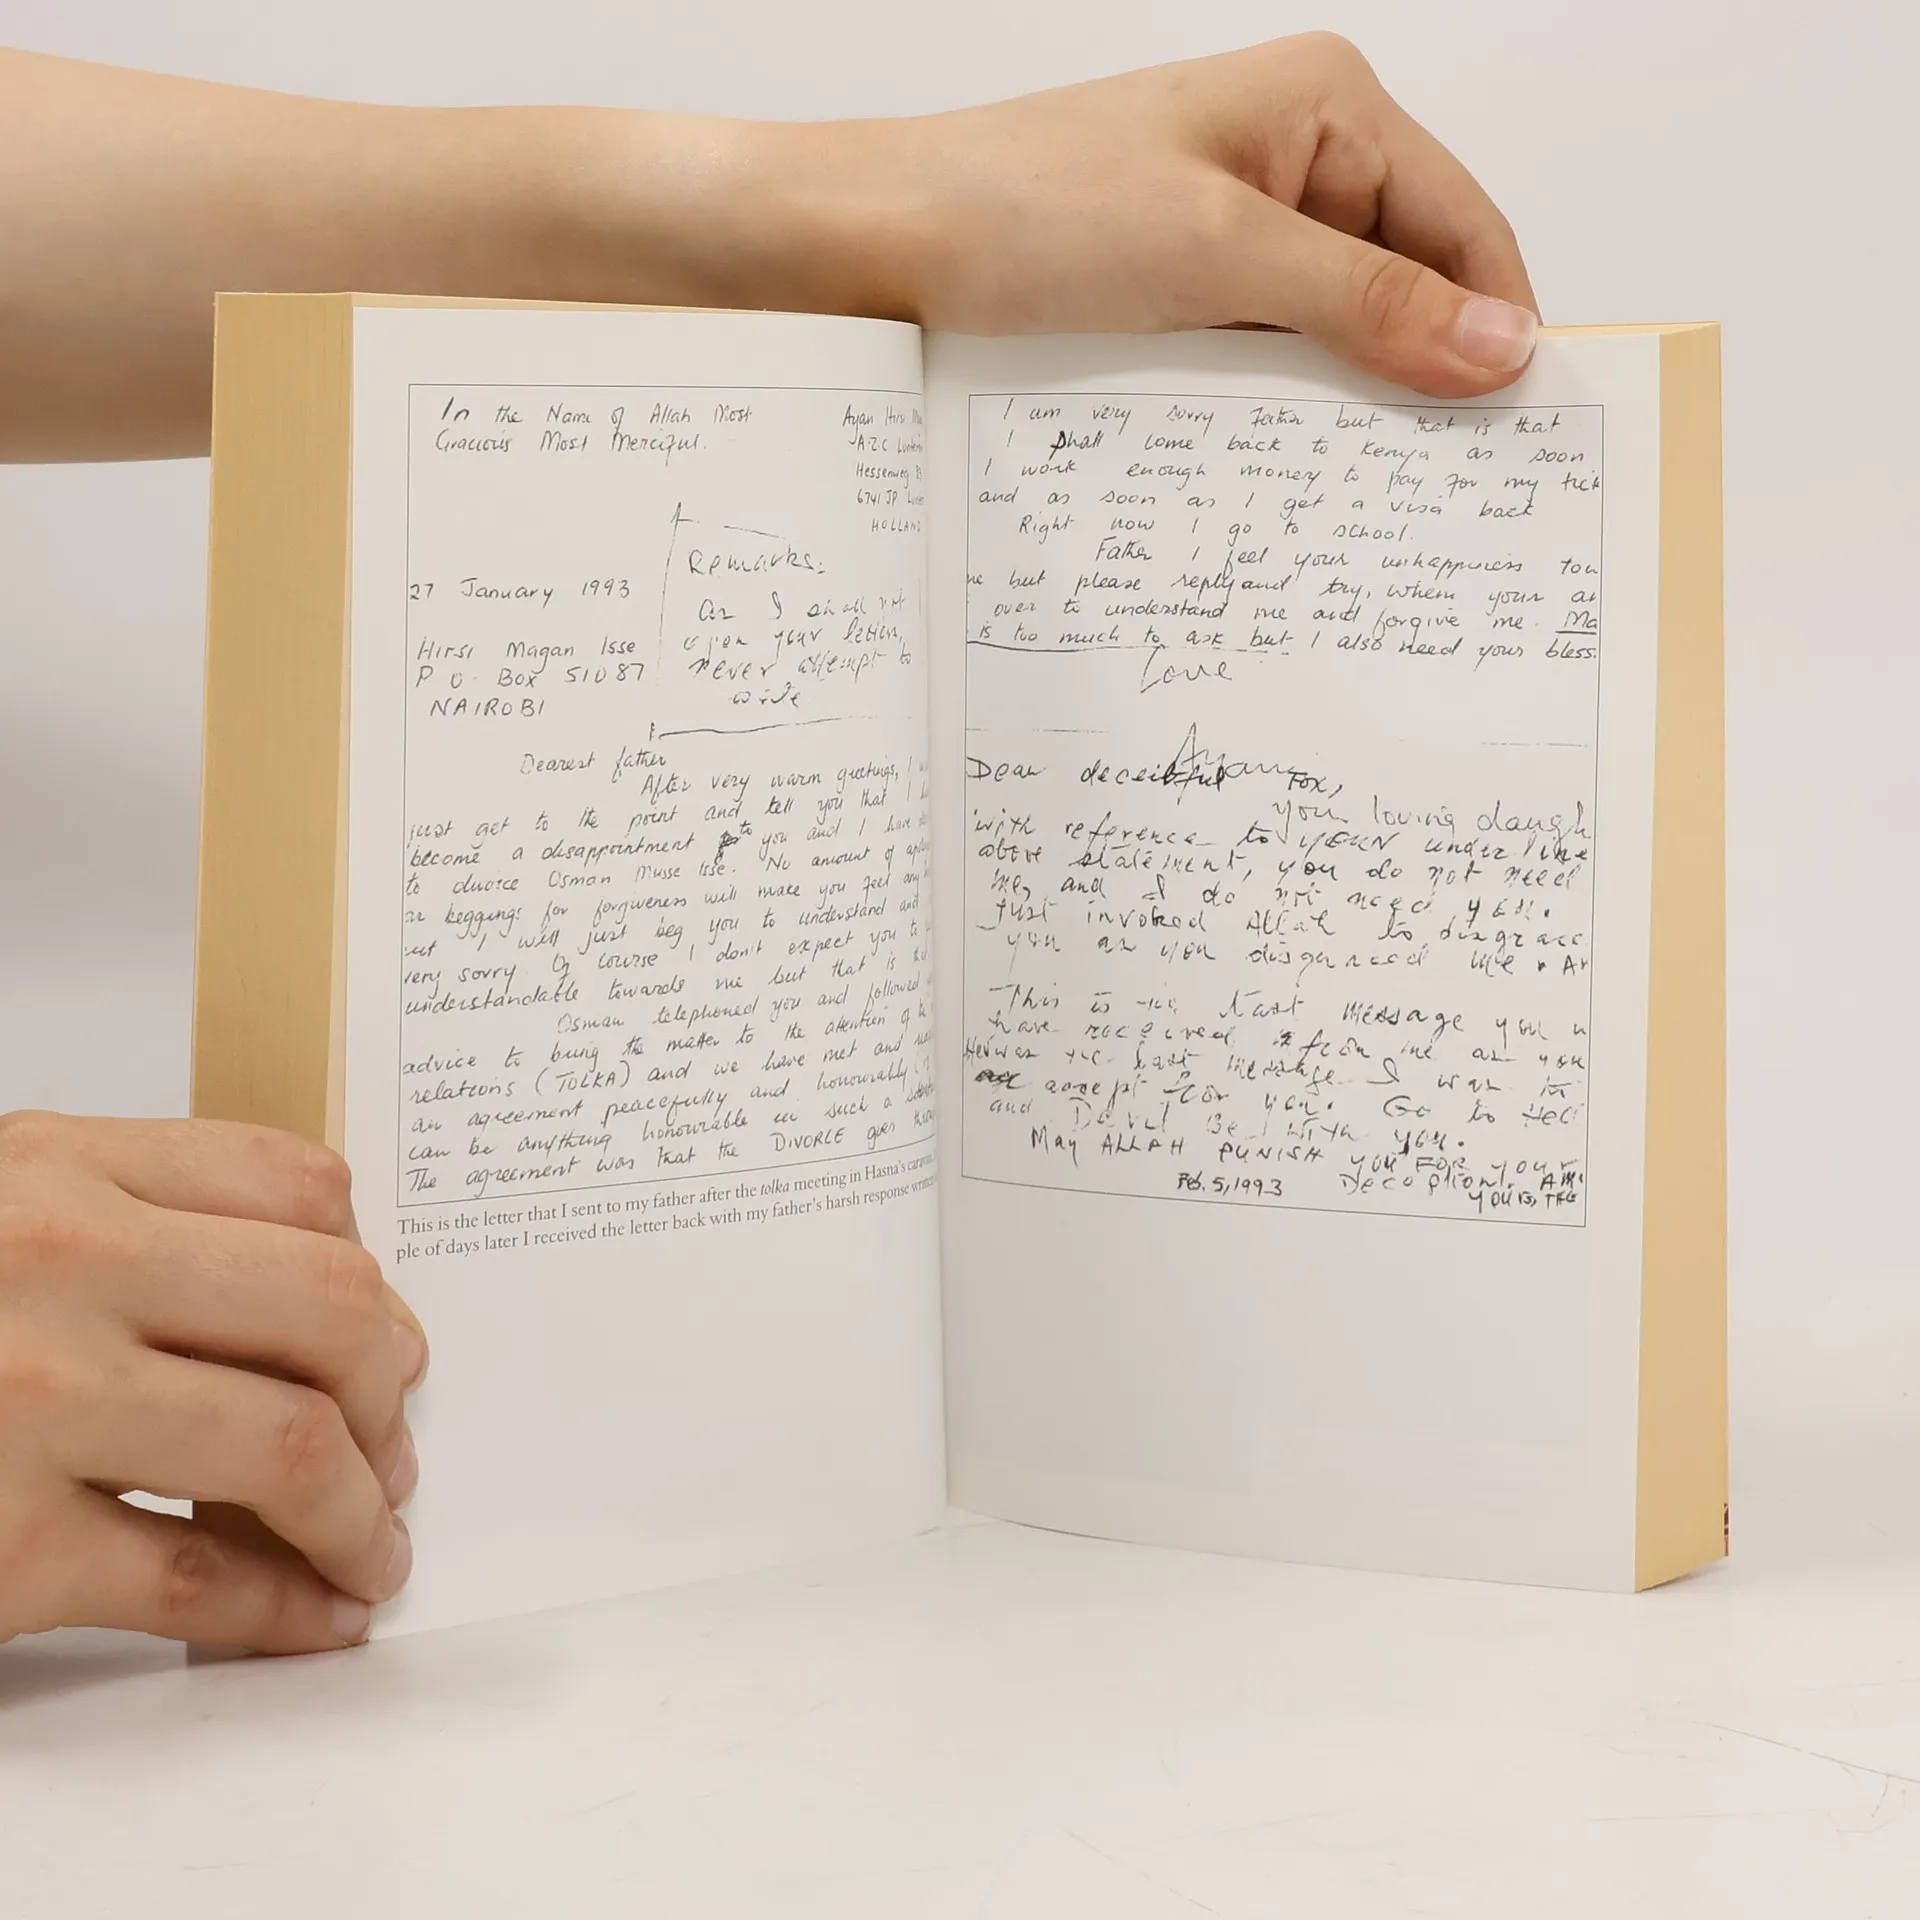 In the Name of Allah Most
Gracious Most Merciful.
Ayan Hirsi
A.Z.C
Hessenweg
6741 JP
HOLLAND
Remarks:
as I shall not
open your letters,
never attempt to
write
27 January 1993
Hirsi Magan Isse
P O. Box 51087
NAIROBI
Dearest father
After very warm greetings, I
just get to the point and tell you that I
become a disappointment to you and I have
to divorce Osman Musse Isse. No amount of
or beggings for forgiveness will make you feel any
but I will just beg you to understand and
very sorry. Of course I don't expect you to
understandable towards me but that is
Osman telephoned you and followed
advice to bring the matter to the attention of
relations (TOLKA) and we have met and
an agreement peacefully and honourably (
can be anything honourable in such a
The agreement was that the DIVORCE goes
This is the letter that I sent to my father after the tolka meeting in Hasna's caravan.
ple of days later I received the letter back with my father's harsh response
I am very sorry Father but that is that
I shall come back to Kenya as soon
I work enough money to pay for my tick
and as soon as I get a visa back
Right now I go to school.
Father I feel your unhappiness tow
me but please reply and try, when your an
over to understand me and forgive me. Ma
is too much to ask but I also need your bless
Love
Ayaan
Dear deceitful Fox,
your loving daugh
with reference to your underline
above statement, you do not need
me, and I do not need you.
just invoked Allah to disgrace
you as you disgraced me. Am
This is the last message you
have received from me as
was the last message I was to
accept for you. Go to Hell
and Devil Be with you.
May ALLAH PUNISH YOU FOR your
Feb. 5, 1993 Deception. AM
yours, THE